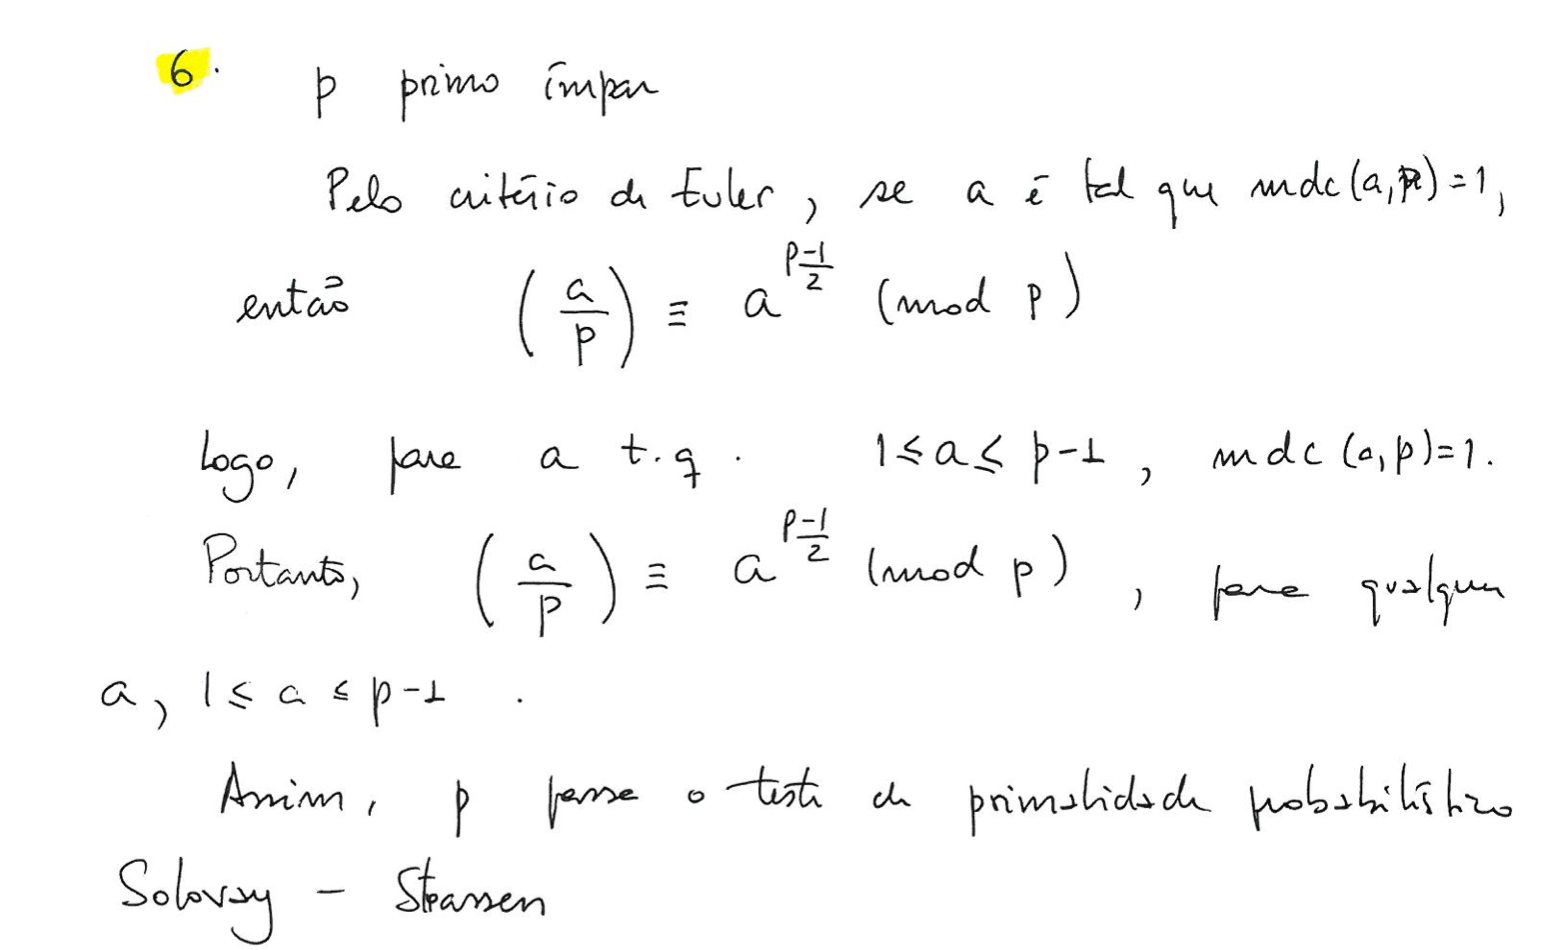 6. p primo ímpar
Pelo critério de Euler, se a é tal que mdc(a,p)=1,
então (a/p) ≡ a^((p-1)/2) (mod p)
Logo, para a t.q. 1≤a≤p-1, mdc(a,p)=1.
Portanto, (a/p) ≡ a^((p-1)/2) (mod p), para qualquer
a, 1≤a≤p-1.
Assim, p passa o teste de primalidade probabilístico
Solovay - Strassen